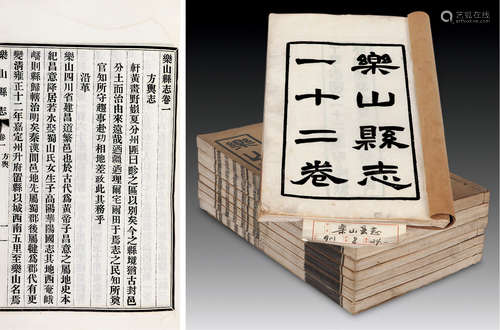 樂山縣志卷一
方輿志
軒黃畫野嶽夏分州匪曰畛之區以別矣今之縣境猶古封邑
分土而治由來遠哉遐疆邇理爾宅爾田于焉志之民知所奠
官知所守趨事赴功相地差政此其務乎
沿革
樂山四川省建昌道繁邑也於古代為黃帝子昌意之屬地史本
紀昌意降居若水娶蜀山氏女生子高陽華陽國志其地西奄峨
嶓則縣歸轄治明矣秦漢間邑地先屬蜀郡後屬犍為郡代有更
變清雍正十二年嘉定州升府置縣以城西南五里至樂山名焉
樂山縣志
卷一 方輿
一
樂山縣志
一十二卷
樂山县志